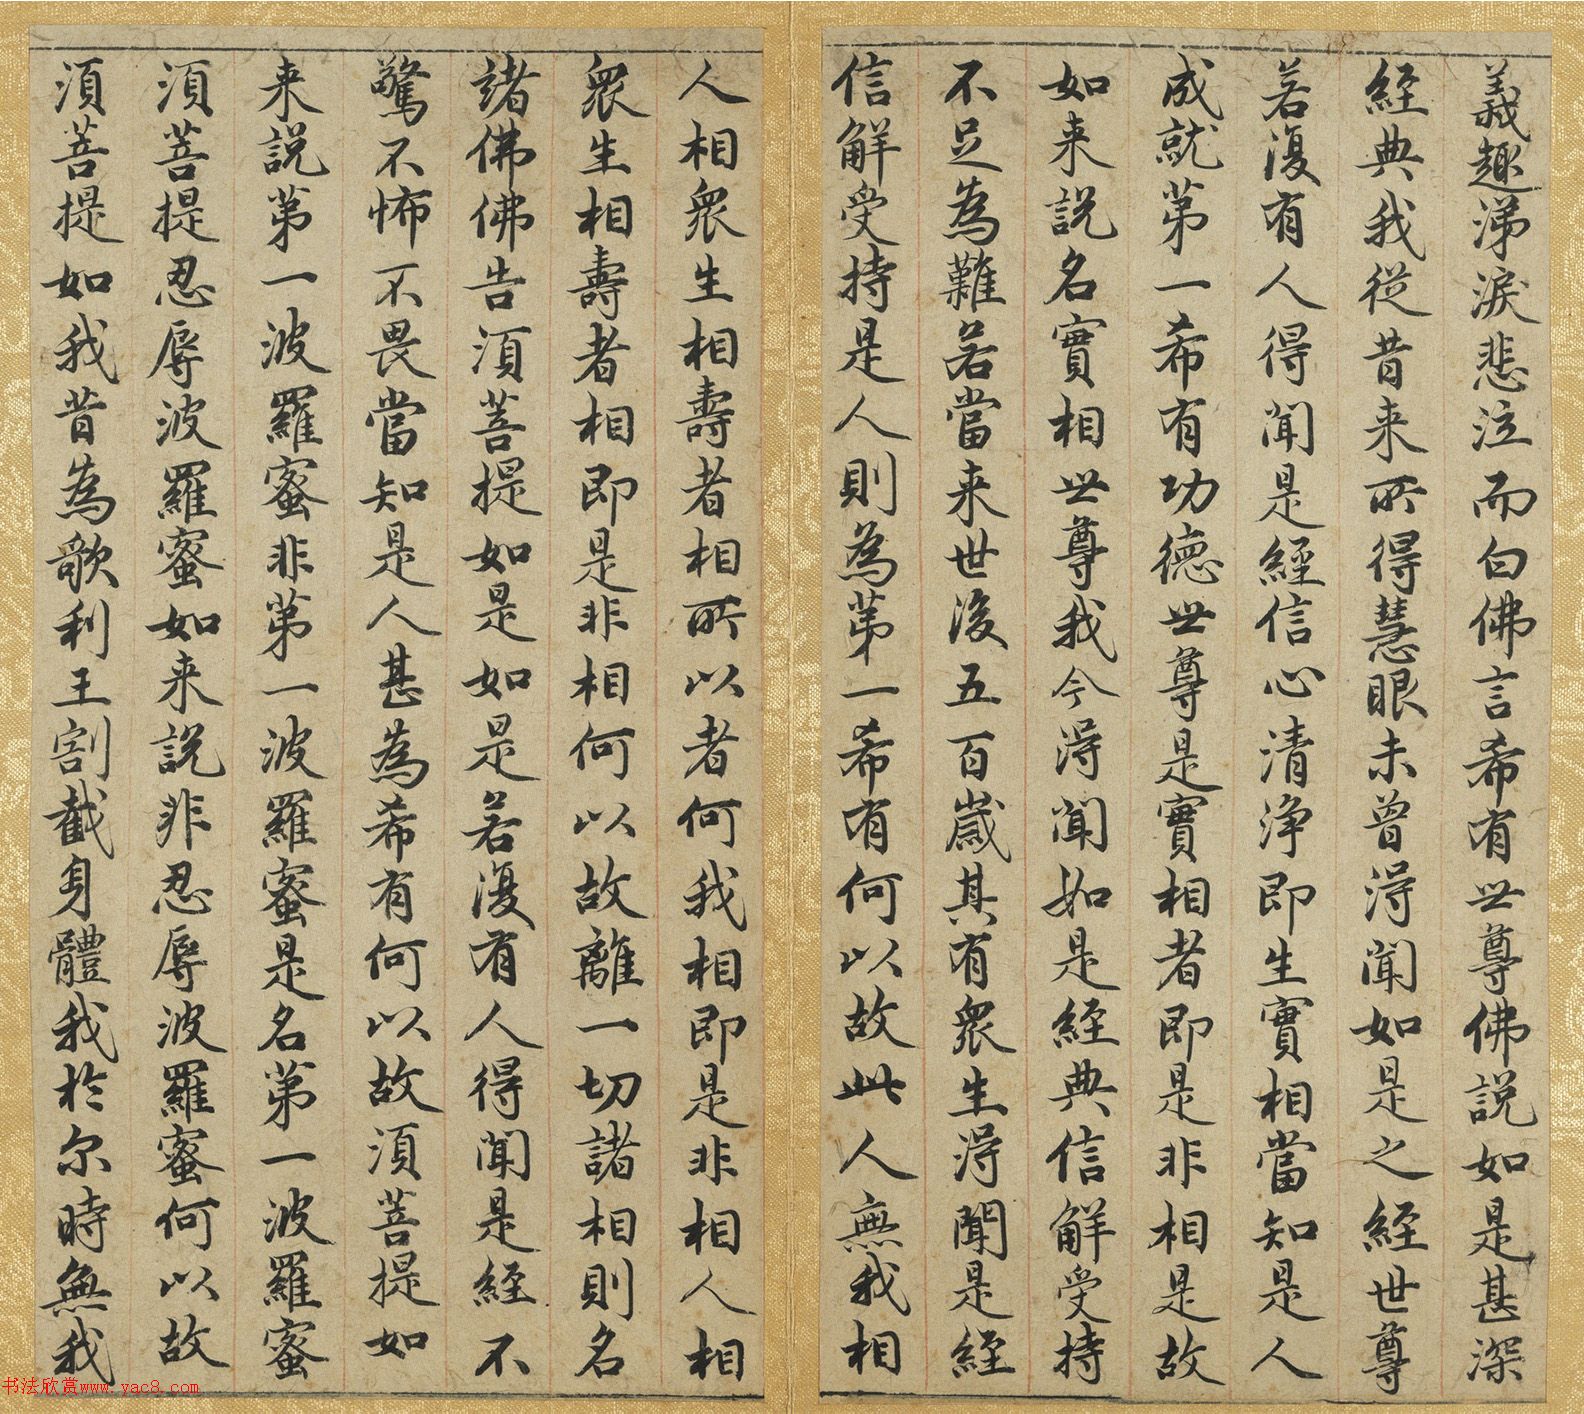 義趣涕淚悲泣而白佛言希有世尊佛說如是甚深
經典我從昔来所得慧眼未曾得聞如是之經世尊
若復有人得聞是經信心清淨即生實相當知是人
成就第一希有功德世尊是實相者即是非相是故
如来說名實相世尊我今得聞如是經典信解受持
不足為難若當来世後五百歲其有眾生得聞是經
信解受持是人則為第一希有何以故此人無我相
人相眾生相壽者相所以者何我相即是非相人相
眾生相壽者相即是非相何以故離一切諸相則名
諸佛佛告須菩提如是如是若復有人得聞是經不
驚不怖不畏當知是人甚為希有何以故須菩提如
来說第一波羅蜜非第一波羅蜜是名第一波羅蜜
須菩提忍辱波羅蜜如来說非忍辱波羅蜜何以故
須菩提如我昔為歌利王割截身體我於尔時無我
书法欣赏www.yac8.com